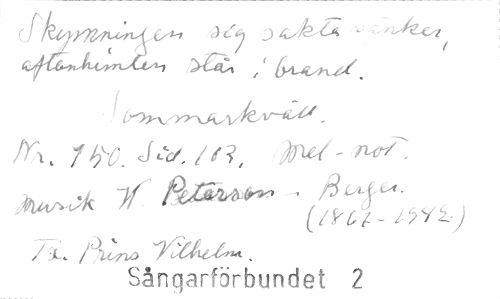 Skymningen sig sakta sänker,
aftonhimlen står i brand.
Sommarkväll.
Nr. 750. Sid. 163. Mel-not.
Musik W. Peterson-Berger.
(1867-1942)
Tx. Prins Vilhelm.
Sångarförbundet 2